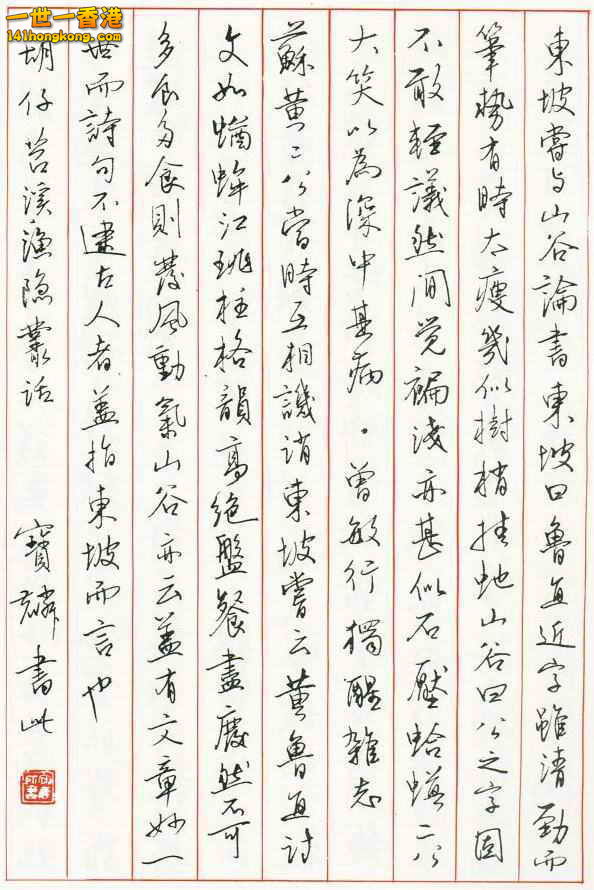 一世一香港
141hongkong.com
東坡嘗与山谷論書東坡曰魯直近字雖清勁而
筆勢有時太瘦幾似樹梢挂蛇山谷曰公之字固
不敢輕議然间覚褊浅亦甚似石壓蛤蟆二公
大笑以為深中其病・曾敏行獨醒雜志
蘇黄二公當時互相譏誚東坡嘗云黄魯直诗
文如蝤蛑江珧柱格韻高绝盤餐盡廢然不可
多食多食則發風動氣山谷亦云蓋有文章妙一
世而詩句不逮古人者蓋指東坡而言也
胡仔苕溪渔隐叢话
寶麟書此